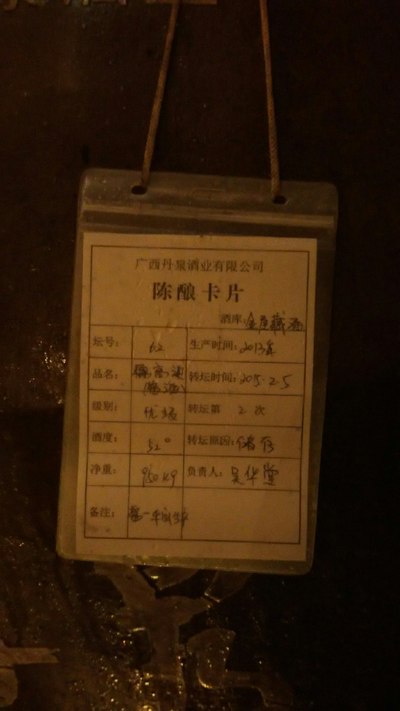 广西丹泉酒业有限公司
陈酿卡片
酒库:
坛号: 62 生产时间: 2013年
品名: 转坛时间: 205.2.5
级别: 优级 转坛第 2 次
酒度: 52° 转坛原因: 储存
净重: 950kg 负责人: 吴华堂
备注: